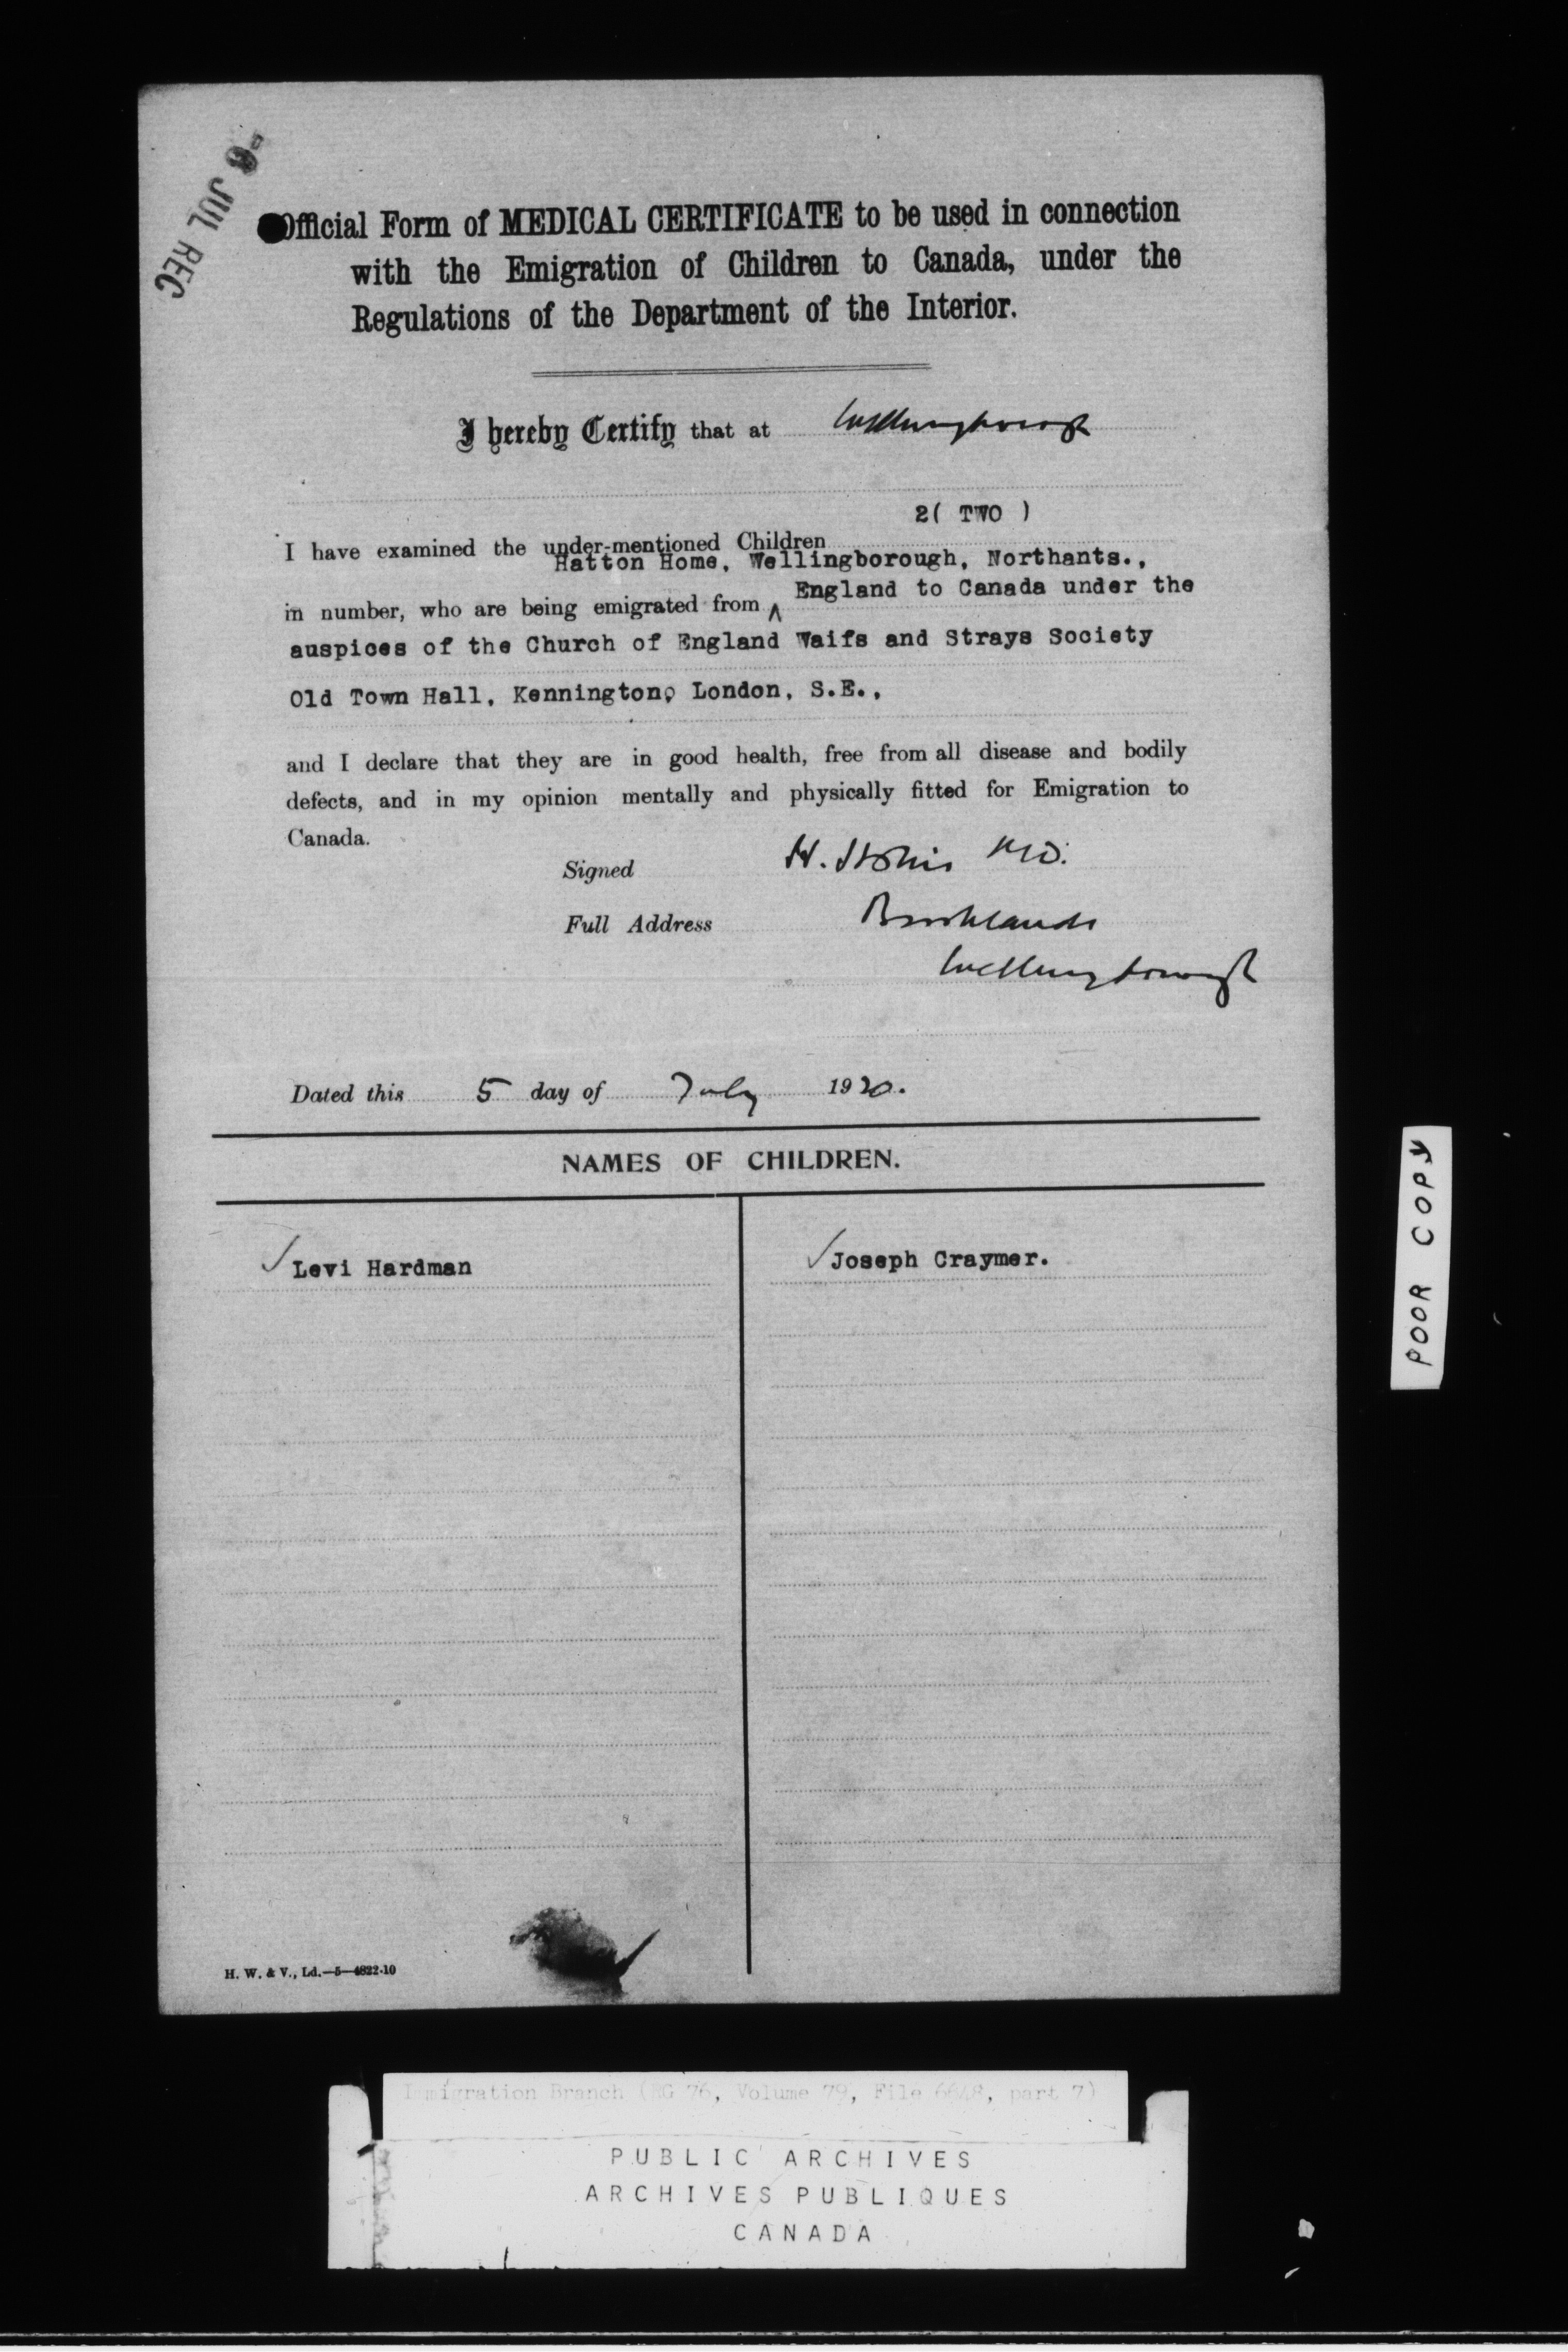 9 JUL REC
Official Form of MEDICAL CERTIFICATE to be used in connection
with the Emigration of Children to Canada, under the
Regulations of the Department of the Interior.
I hereby Certify that at Wellingborough
2( TWO )
I have examined the under-mentioned Children
Hatton Home, Wellingborough, Northants.,
in number, who are being emigrated from ^ England to Canada under the
auspices of the Church of England Waifs and Strays Society
Old Town Hall, Kennington, London, S.E.,
and I declare that they are in good health, free from all disease and bodily
defects, and in my opinion mentally and physically fitted for Emigration to
Canada.
Signed H. MD.
Full Address Brooklands
Wellingborough
Dated this 5 day of July 1920.
NAMES OF CHILDREN.
✓ Levi Hardman
✓ Joseph Craymer.
H. W. & V., Ld.—5—4822-10
POOR COPY
Immigration Branch (RG 76, Volume 79, File 6648, part 7)
PUBLIC ARCHIVES
ARCHIVES PUBLIQUES
CANADA